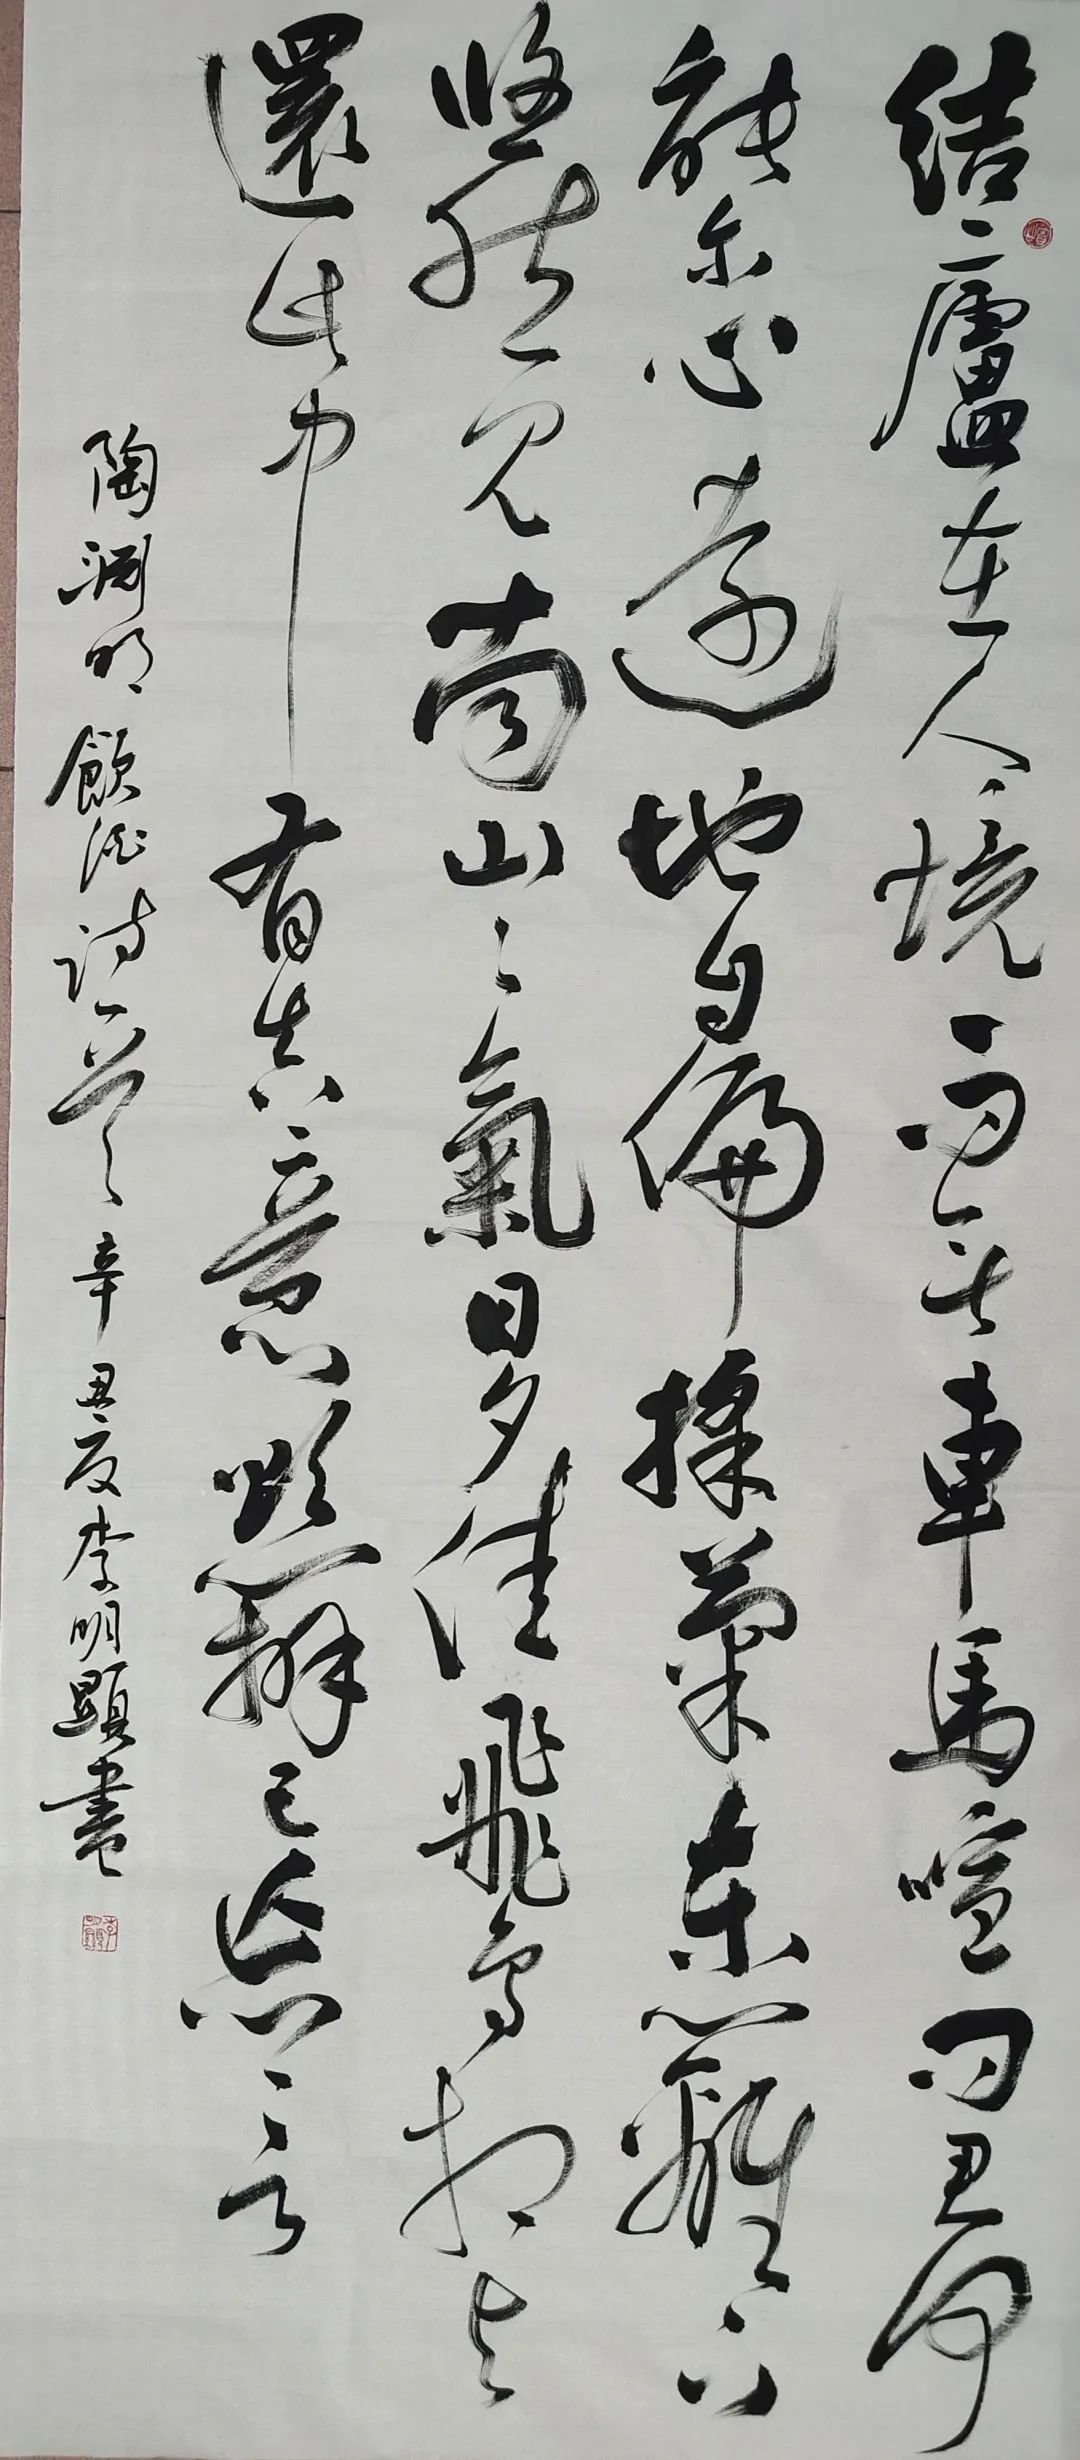 結廬在人境而无車馬喧问君何
能尔心遠地自偏採菊东籬下
悠然见南山〻氣日夕佳飛鸟相与
還此中有真意欲辯已忘言
陶渊明飲酒诗一首辛丑夏李明顯書